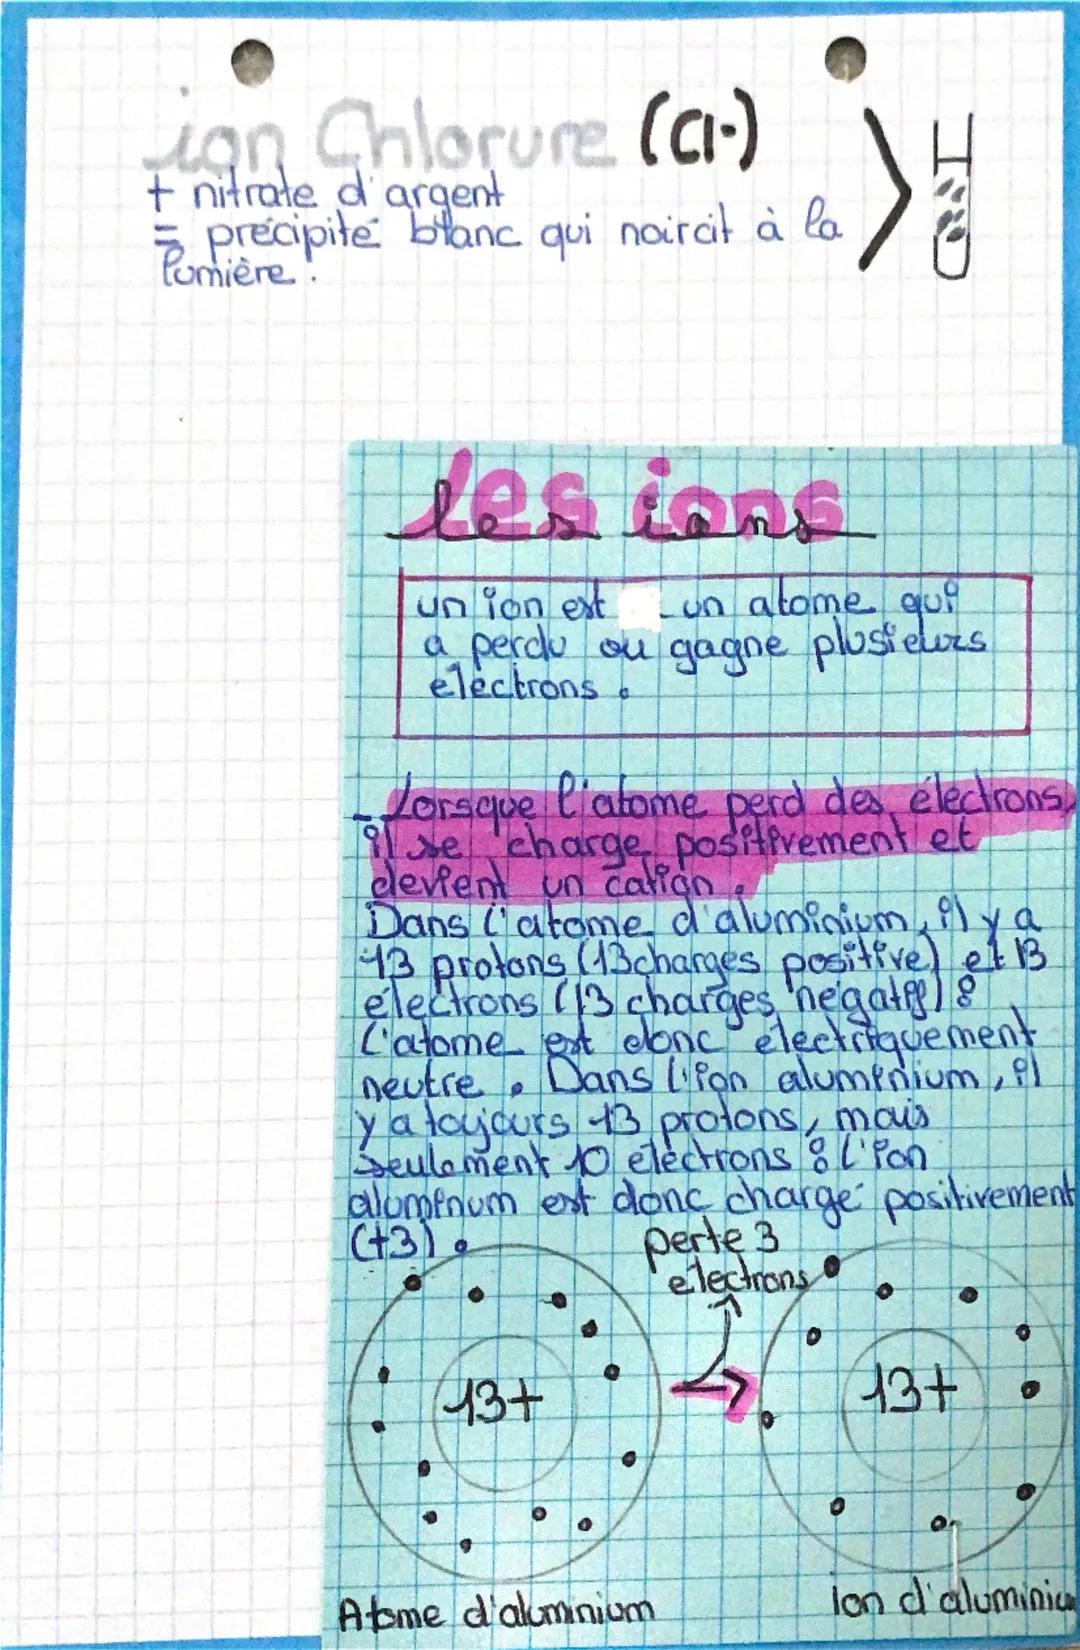 ion Chlorure (Cl-)
+ nitrate d'argent
= précipité blanc qui noircit à la
lumière.
les ions
les ions
un ion est un atome qui
a perdu ou gagne plusieurs
électrons.
- Lorsque l'atome perd des électrons,
il se charge positivement et
devient un cation.
Dans l'atome d'aluminium, il y a
13 protons (13charges positive) et 13
électrons (13 charges négatif) :
l'atome est donc électriquement
neutre. Dans l'ion aluminium, il
y a toujours 13 protons, mais
seulement 10 électrons : l'ion
aluminum est donc chargé positivement
(+3).
perte 3
électrons
13+
13+
Atome d'aluminium
ion d'aluminium